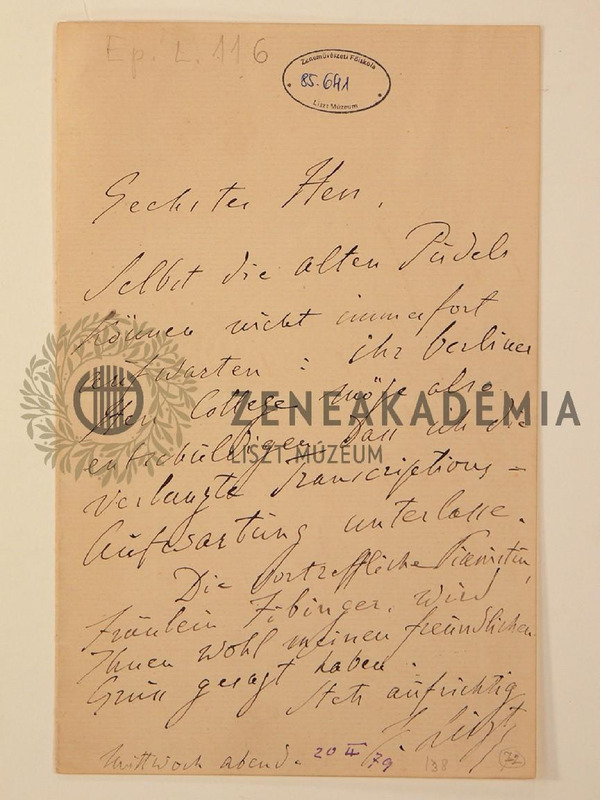 Ep. L. 116
Zeneművészeti Főiskola
85.641
Liszt Múzeum
Geehrter Herr,
Selbst die alten Pudels
können nicht immerfort
aufwarten: ihr berliner
Herr College möge also
entschuldigen dass ich die
verlangte Transcriptions-
Aufwartung unterlasse.
Die vortreffliche Pianistin,
Fräulein, wird
Ihnen wohl meinen freundlichen
Gruss gesagt haben.
Stets aufrichtig
F. Liszt
Mittwoch abend. 20 II 79
138
72
ZENEAKADÉMIA
LISZT MÚZEUM